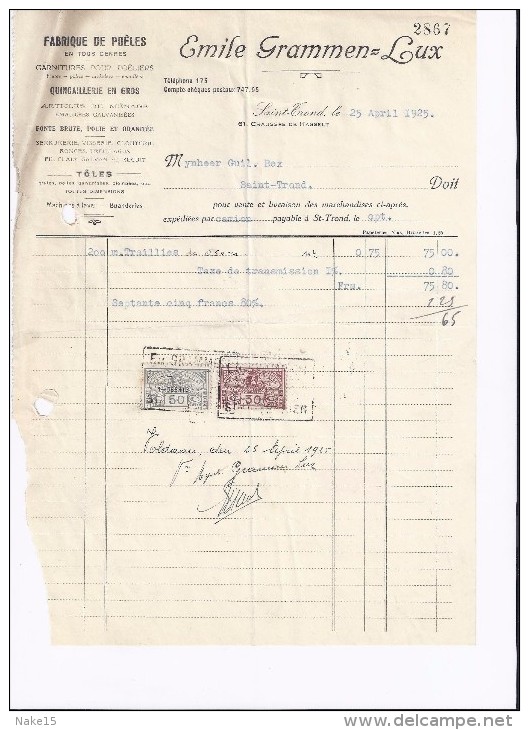 2867
FABRIQUE DE POÊLES
EN TOUS GENRES
GARNITURES POUR POÊLIERS
QUINCAILLERIE EN GROS
ARTICLES DE MÉNAGE
FONTE BRUTE, POLIE ET
TÔLES
TOUTES DIMENSIONS
Machines à laver Buanderies
Emile Grammen-Lux
Téléphone 175
Compte chèques postaux: 747.65
Saint-Trond, le 25 April 1925.
61, CHAUSSÉE DE HASSELT
Mynheer Guil. Box
Saint-Trond.
Doit
pour vente et livraison des marchandises ci-après,
expédiées par camion payable à St-Trond, le cpt.
200 m. Traillies de 0 75 75 00.
Taxe de transmission 1% 0 80
Frs 75 80.
Septante cinq francs 80%.
65
50
30
Voldaan, den 25 April 1925
Grammen Lux
Nake15
delcampe.net